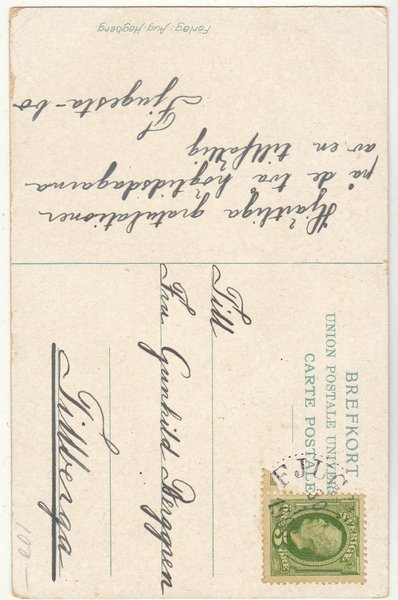 BREFKORT
UNION POSTALE UNIVERS
CARTE POSTALE
FJUG
SVERIGE
5
ÖRE
Till
Fru Gunhild Berggren
Tillberga
Hjärtliga gratulationer
på de två högtidsdagarna
av en tillfällig
Fjugesta-bo
Förlag: Aug. Hagberg
100-